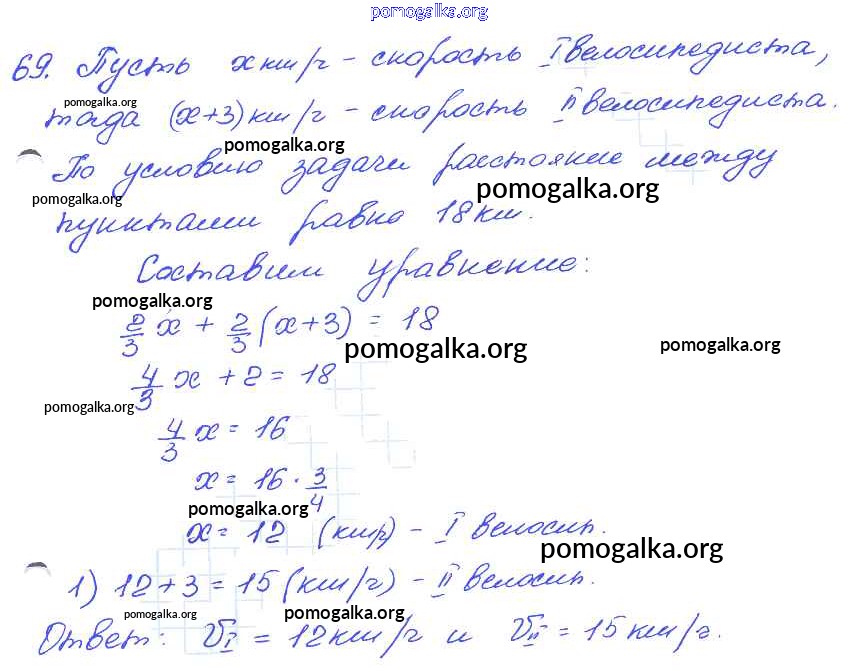 pomogalka.org
69. Пусть x км/ч - скорость I велосипедиста,
pomogalka.org
тогда (x+3) км/ч - скорость II велосипедиста.
pomogalka.org
По условию задачи расстояние между
pomogalka.org
pomogalka.org
пунктами равно 18 км.
Составим уравнение:
pomogalka.org
2/3 x + 2/3 (x+3) = 18
pomogalka.org
pomogalka.org
4/3 x + 2 = 18
pomogalka.org
4/3 x = 16
x = 16 · 3/4
pomogalka.org
x = 12 (км/ч) - I велосип.
pomogalka.org
1) 12+3 = 15 (км/ч) - II велосип.
pomogalka.org
pomogalka.org
Ответ: VI = 12 км/ч и VII = 15 км/ч.